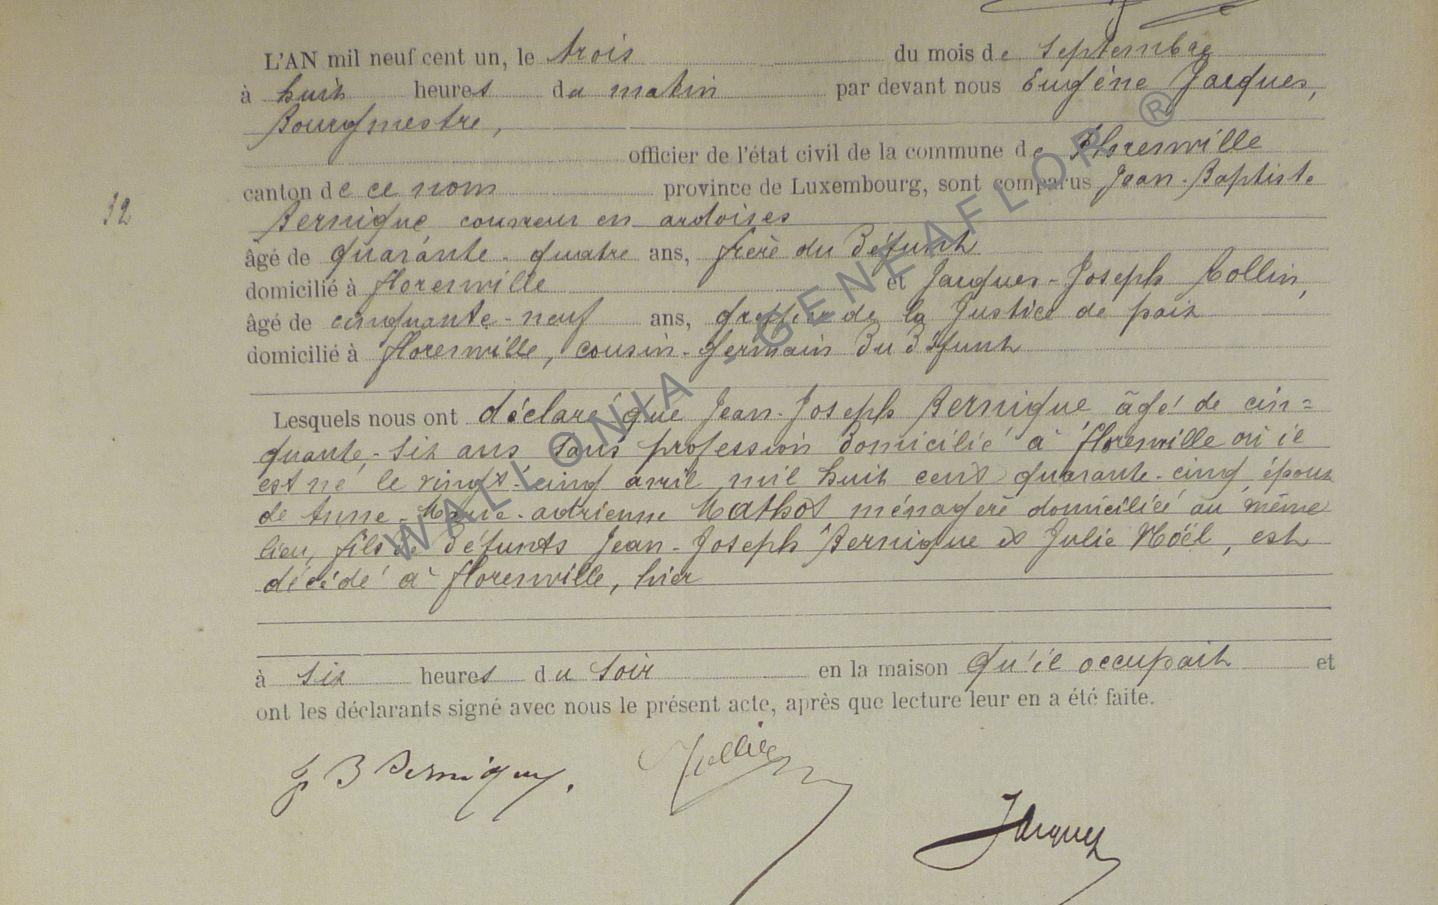 L'AN mil neuf cent un, le trois du mois de septembre
à huit heures du matin par devant nous Eugène Jacques,
Bourgmestre,
officier de l'état civil de la commune de Florenville
canton de ce nom province de Luxembourg, sont comparus Jean-Baptiste
32 Pernique couvreur en ardoises
âgé de quarante-quatre ans, frère du Défunt
domicilié à florenville et Jacques-Joseph Collin,
âgé de cinquante-neuf ans, greffier de la Justice de paix
domicilié à florenville, cousin-germain Du Défunt
Lesquels nous ont déclaré que Jean-Joseph Pernique, âgé de cin=
quante-six ans sans profession Domicilié à florenville où il
est né le vingt-cinq avril mil huit cent quarante-cinq, époux
de Anne-Marie-adrienne Mathot ménagère domiciliée au même
lieu, fils de Défunts Jean-Joseph Pernique et Julie Noël, est
décédé à florenville, hier
à six heures du soir en la maison qu'il occupait et
ont les déclarants signé avec nous le présent acte, après que lecture leur en a été faite.
J B Pernique. Collin Jacques
WALLONIA - GENEAFLOR ®